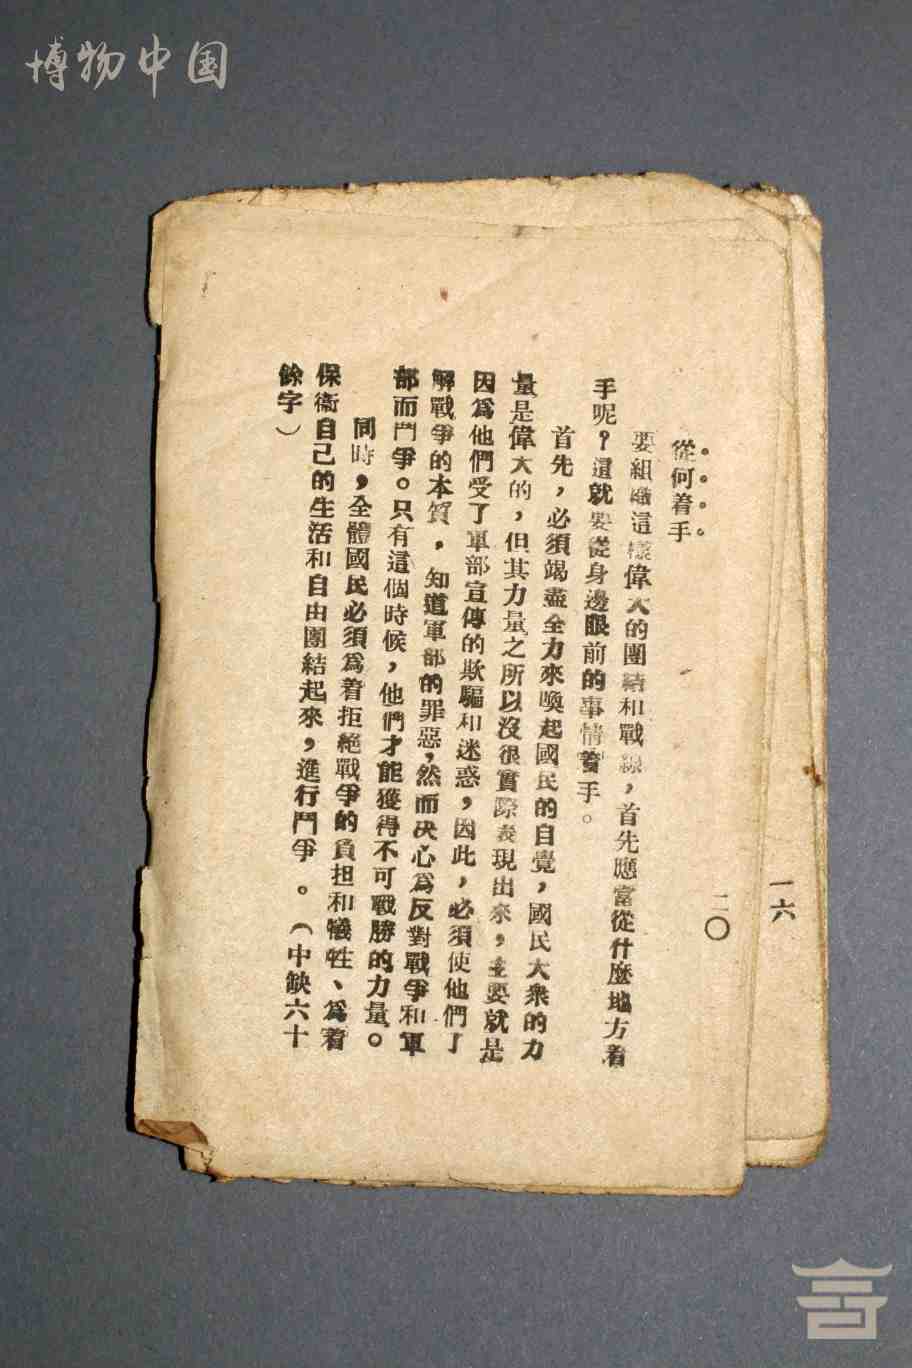 博物中国
一六
二〇
從何着手
要組織這樣偉大的團結和戰線，首先應當從什麼地方着
手呢？這就要從身邊眼前的事情着手。
首先，必須竭盡全力來喚起國民的自覺，國民大衆的力
量是偉大的，但其力量之所以沒很實際表現出來，主要就是
因爲他們受了軍部宣傳的欺騙和迷惑，因此，必須使他們了
解戰爭的本質，知道軍部的罪惡，然而决心爲反對戰爭和軍
部而鬥爭。只有這個時候，他們才能獲得不可戰勝的力量。
同時，全體國民必須爲着拒絕戰爭的負担和犧牲、爲着
保衞自己的生活和自由團結起來，進行鬥爭。（中缺六十
餘字）